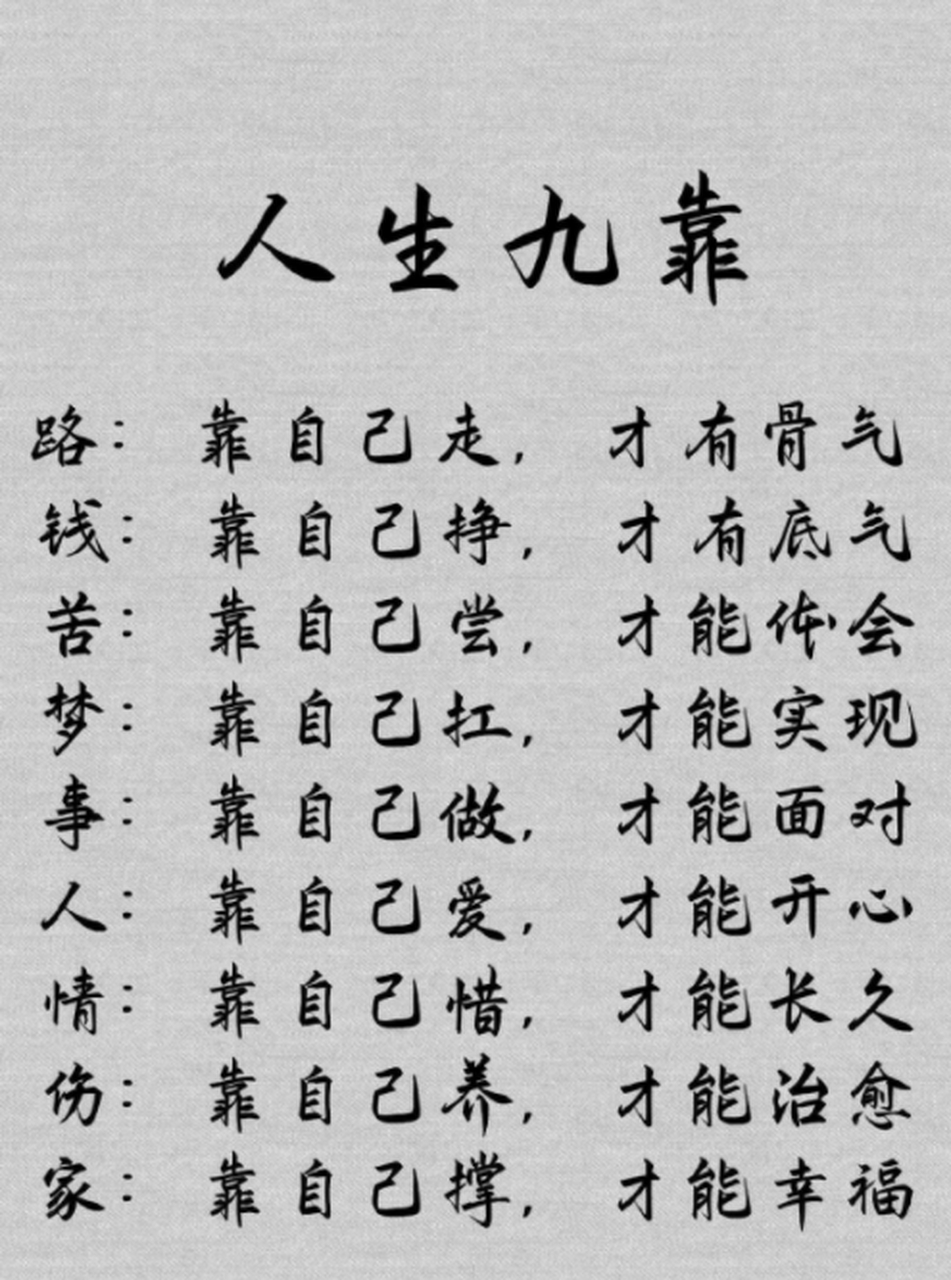 人生九靠
路：靠自己走，才有骨气
钱：靠自己挣，才有底气
苦：靠自己尝，才能体会
梦：靠自己扛，才能实现
事：靠自己做，才能面对
人：靠自己爱，才能开心
情：靠自己惜，才能长久
伤：靠自己养，才能治愈
家：靠自己撑，才能幸福